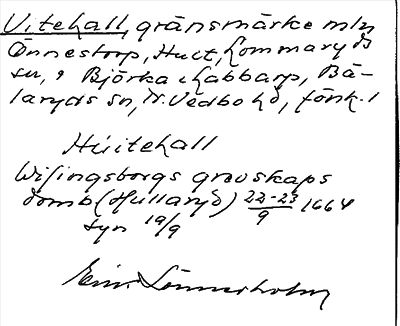 Vitehall, gränsmärke mln
Önnestorp, Hult, Lommaryds
sn, o Björka o Labbarp, Bä-
laryds sn, N. Vedbo hd, förk. i
Huitehall
Wisingsborgs grevskaps
domb (Hullaryd) 22-23/9 1664
syn 19/9
Einar Sönnerholm